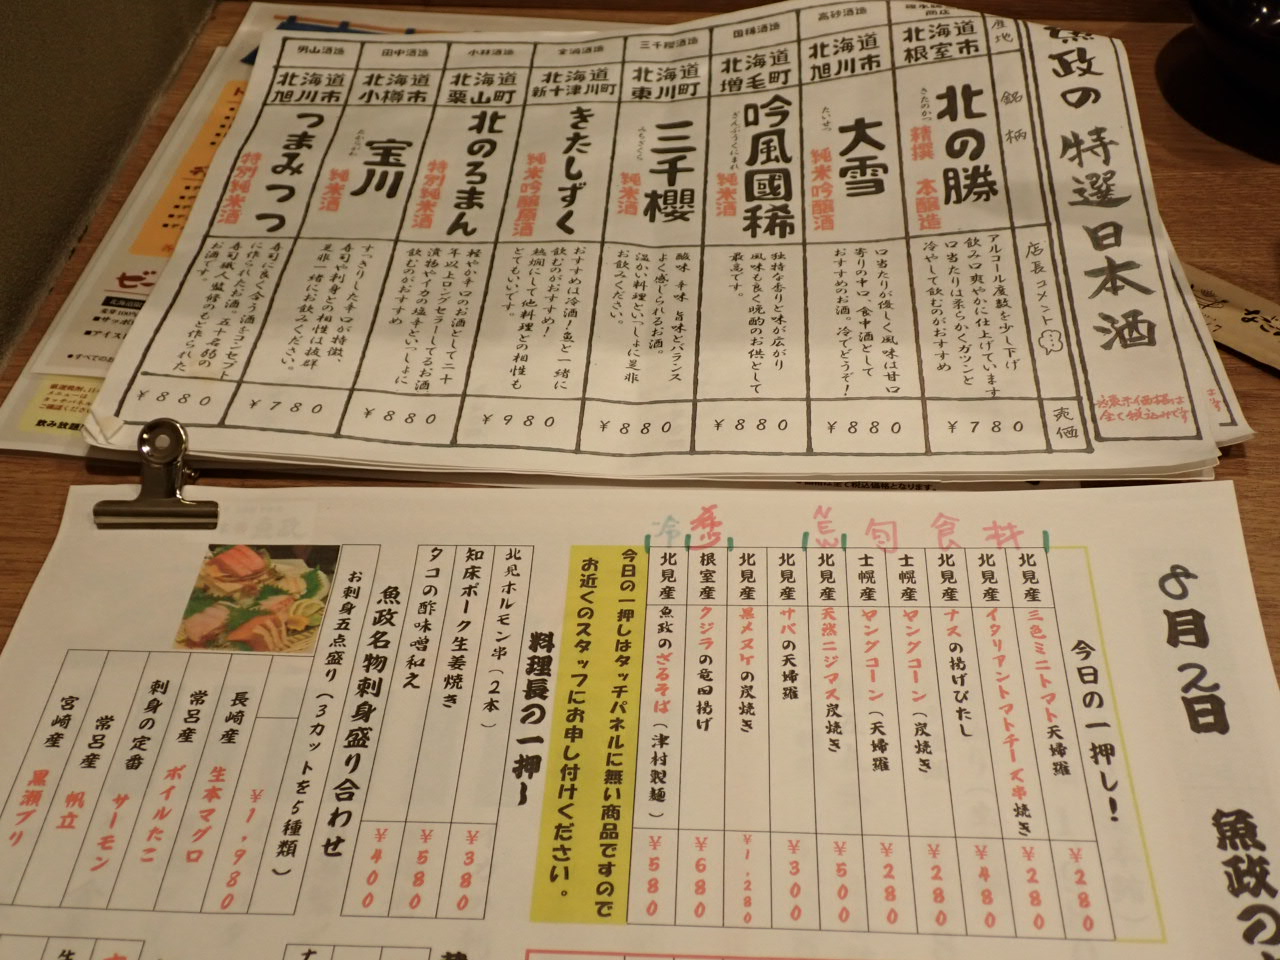 魚政の特選日本酒
表示価格は
全て税込みです
産地
銘柄
店長コメント
売価
北海道
根室市
きたのかつ
北の勝
精撰 本醸造
アルコール度数を少し下げ
飲み口爽やかに仕上げています
口当たりは柔らかくガツンと
冷やして飲むのがおすすめ
￥780
高砂酒造
北海道
旭川市
たいせつ
大雪
純米吟醸酒
口当たりが優しく風味は甘口
寄りの中口、食中酒として
おすすめのお酒。冷でどうぞ！
￥880
国稀酒造
北海道
増毛町
ぎんぷうくにまれ
吟風國稀
純米酒
独特な香りと味が広がり
風味も良く晩酌のお供として
最高です。
￥880
三千櫻酒造
北海道
東川町
みちざくら
三千櫻
純米酒
酸味 辛味 旨味とバランス
よく感じられるお酒。
温かい料理といっしょに是非
お飲みください。
￥880
金滴酒造
北海道
新十津川町
きたしずく
純米吟醸原酒
おすすめは冷酒！魚と一緒に
飲むのがおすすめ！
熱燗にして他料理との相性も
とてもいいです。
￥980
小林酒造
北海道
栗山町
北のろまん
特別純米酒
軽やか辛口のお酒として二十
年以上ロングセラーしてるお酒
漬物やイカの塩辛といっしょに
飲むのがおすすめ
￥880
田中酒造
北海道
小樽市
たからがわ
宝川
純米酒
すっきりした辛口が特徴、
寿司や刺身との相性は抜群
是非一緒にお飲みください。
￥780
男山酒造
北海道
旭川市
つまみつつ
特別純米酒
寿司に良く合う酒をコンセプト
に作られたお酒。五十名の
寿司職人監修のもと作られた
お酒です。
￥880
飲み放題
8月2日
魚政の
今日の一押し！
旬 食材
NEW
冷
北見産 三色ミニトマト天婦羅 ￥280
北見産 イタリアントマトチーズ串焼き ￥280
北見産 ナスの揚げびたし ￥480
士幌産 ヤングコーン（炭焼き ￥280
士幌産 ヤングコーン（天婦羅 ￥280
北見産 天然ニジマス炭焼き ￥500
北見産 サバの天婦羅 ￥300
北見産 黒メヌケの炭焼き ￥1,280
根室産 クジラの竜田揚げ ￥680
北見産 魚政のざるそば（津村製麺） ￥580
今日の一押しはタッチパネルに無い商品ですので
お近くのスタッフにお申し付けください。
料理長の一押し
北見ホルモン串（2本） ￥380
知床ポーク生姜焼き ￥580
タコの酢味噌和え ￥400
魚政名物刺身盛り合わせ
お刺身五点盛り（3カットを5種類） ￥1,980
長崎産 生本マグロ
常呂産 ボイルたこ
刺身の定番 サーモン
常呂産 帆立
宮崎産 黒瀬ブリ